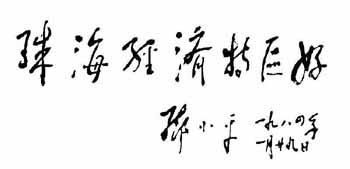 珠海經濟特区好
鄧小平
一九八四年
一月廿九日